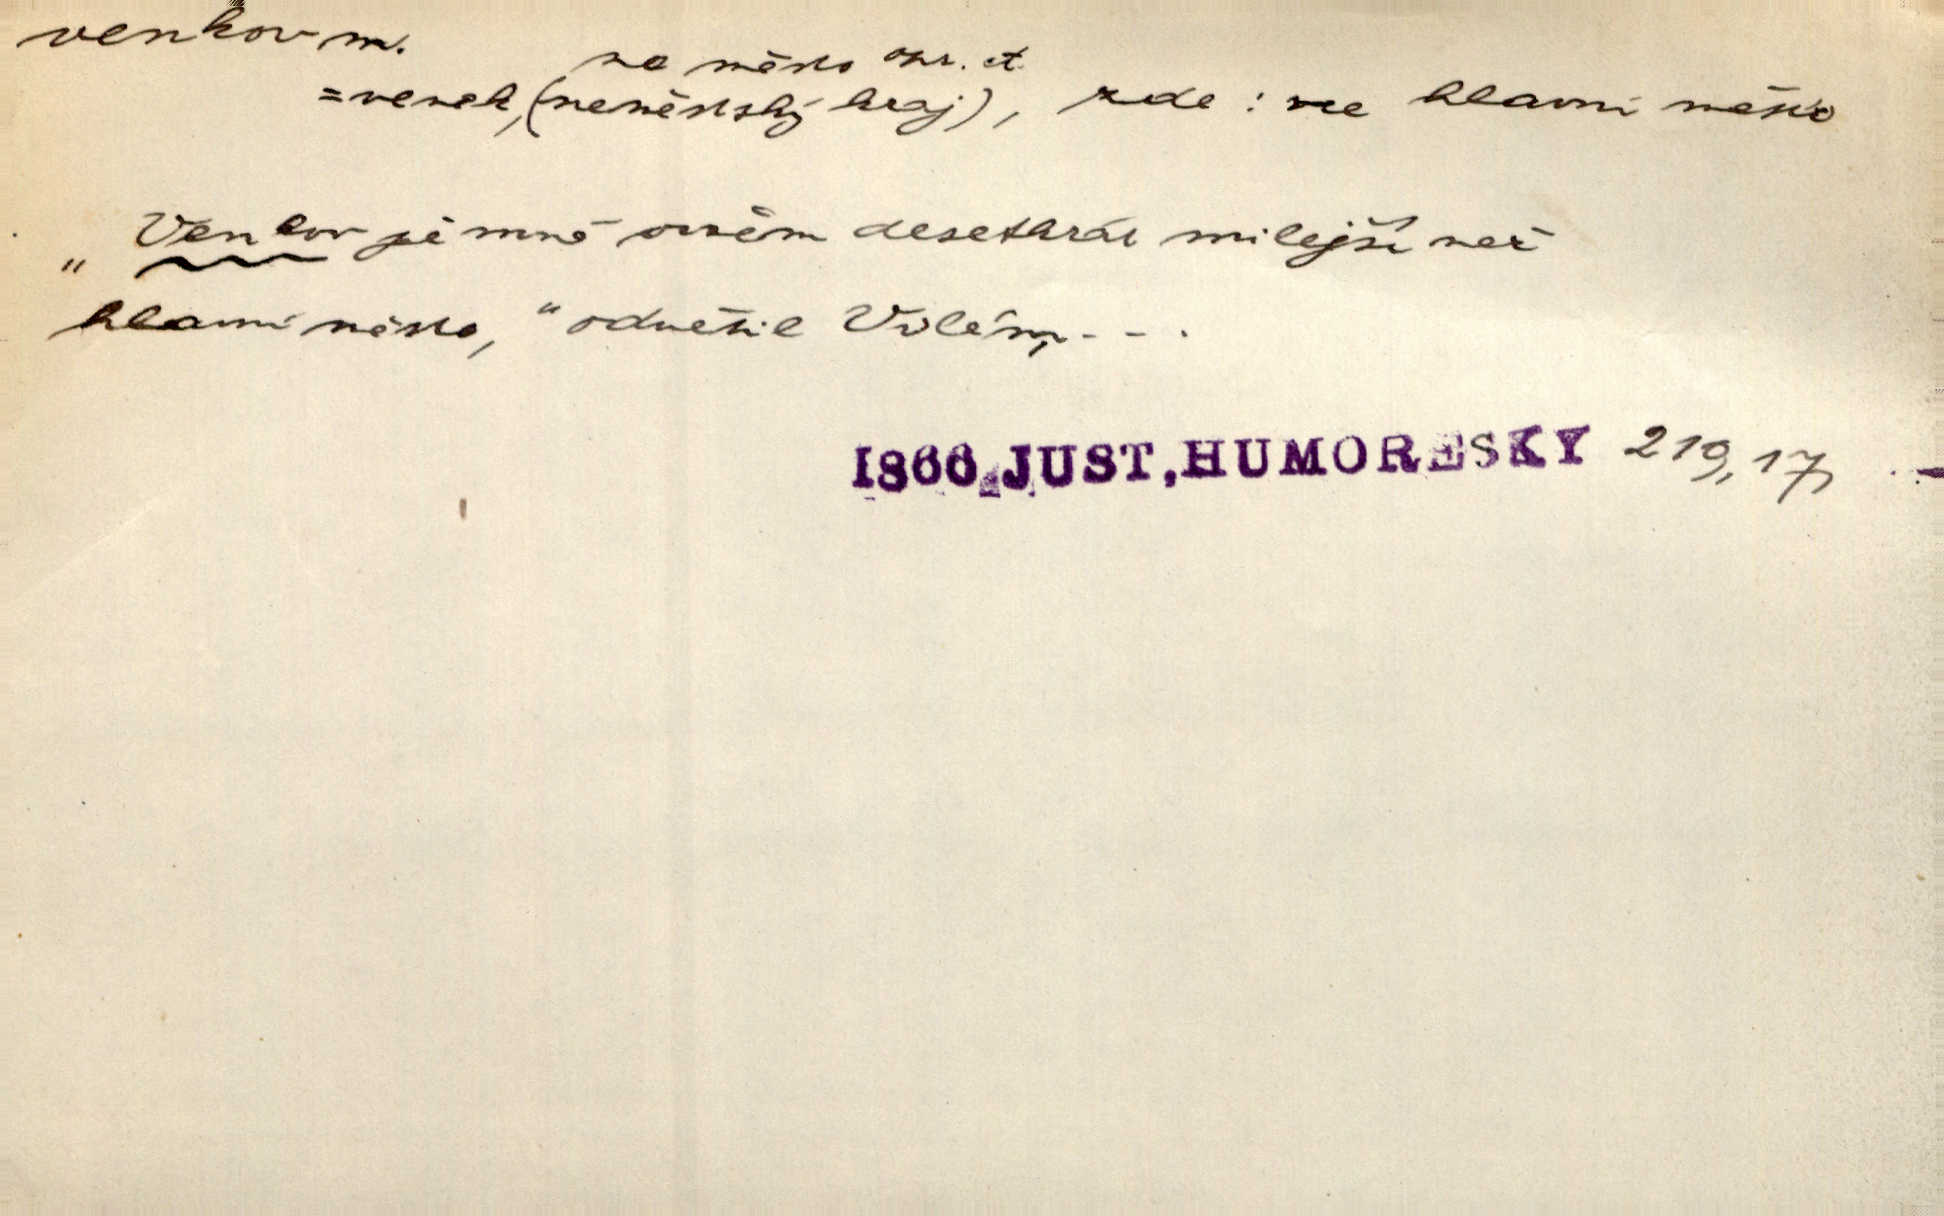 venkov m.
ne město
= venek, (neměstský kraj), zde: ne hlavní město
„Venkov je mně ovšem desetkrát milejší než
hlavní město," odvětil Vilém, - - .
1866 JUST, HUMORESKY 219, 17